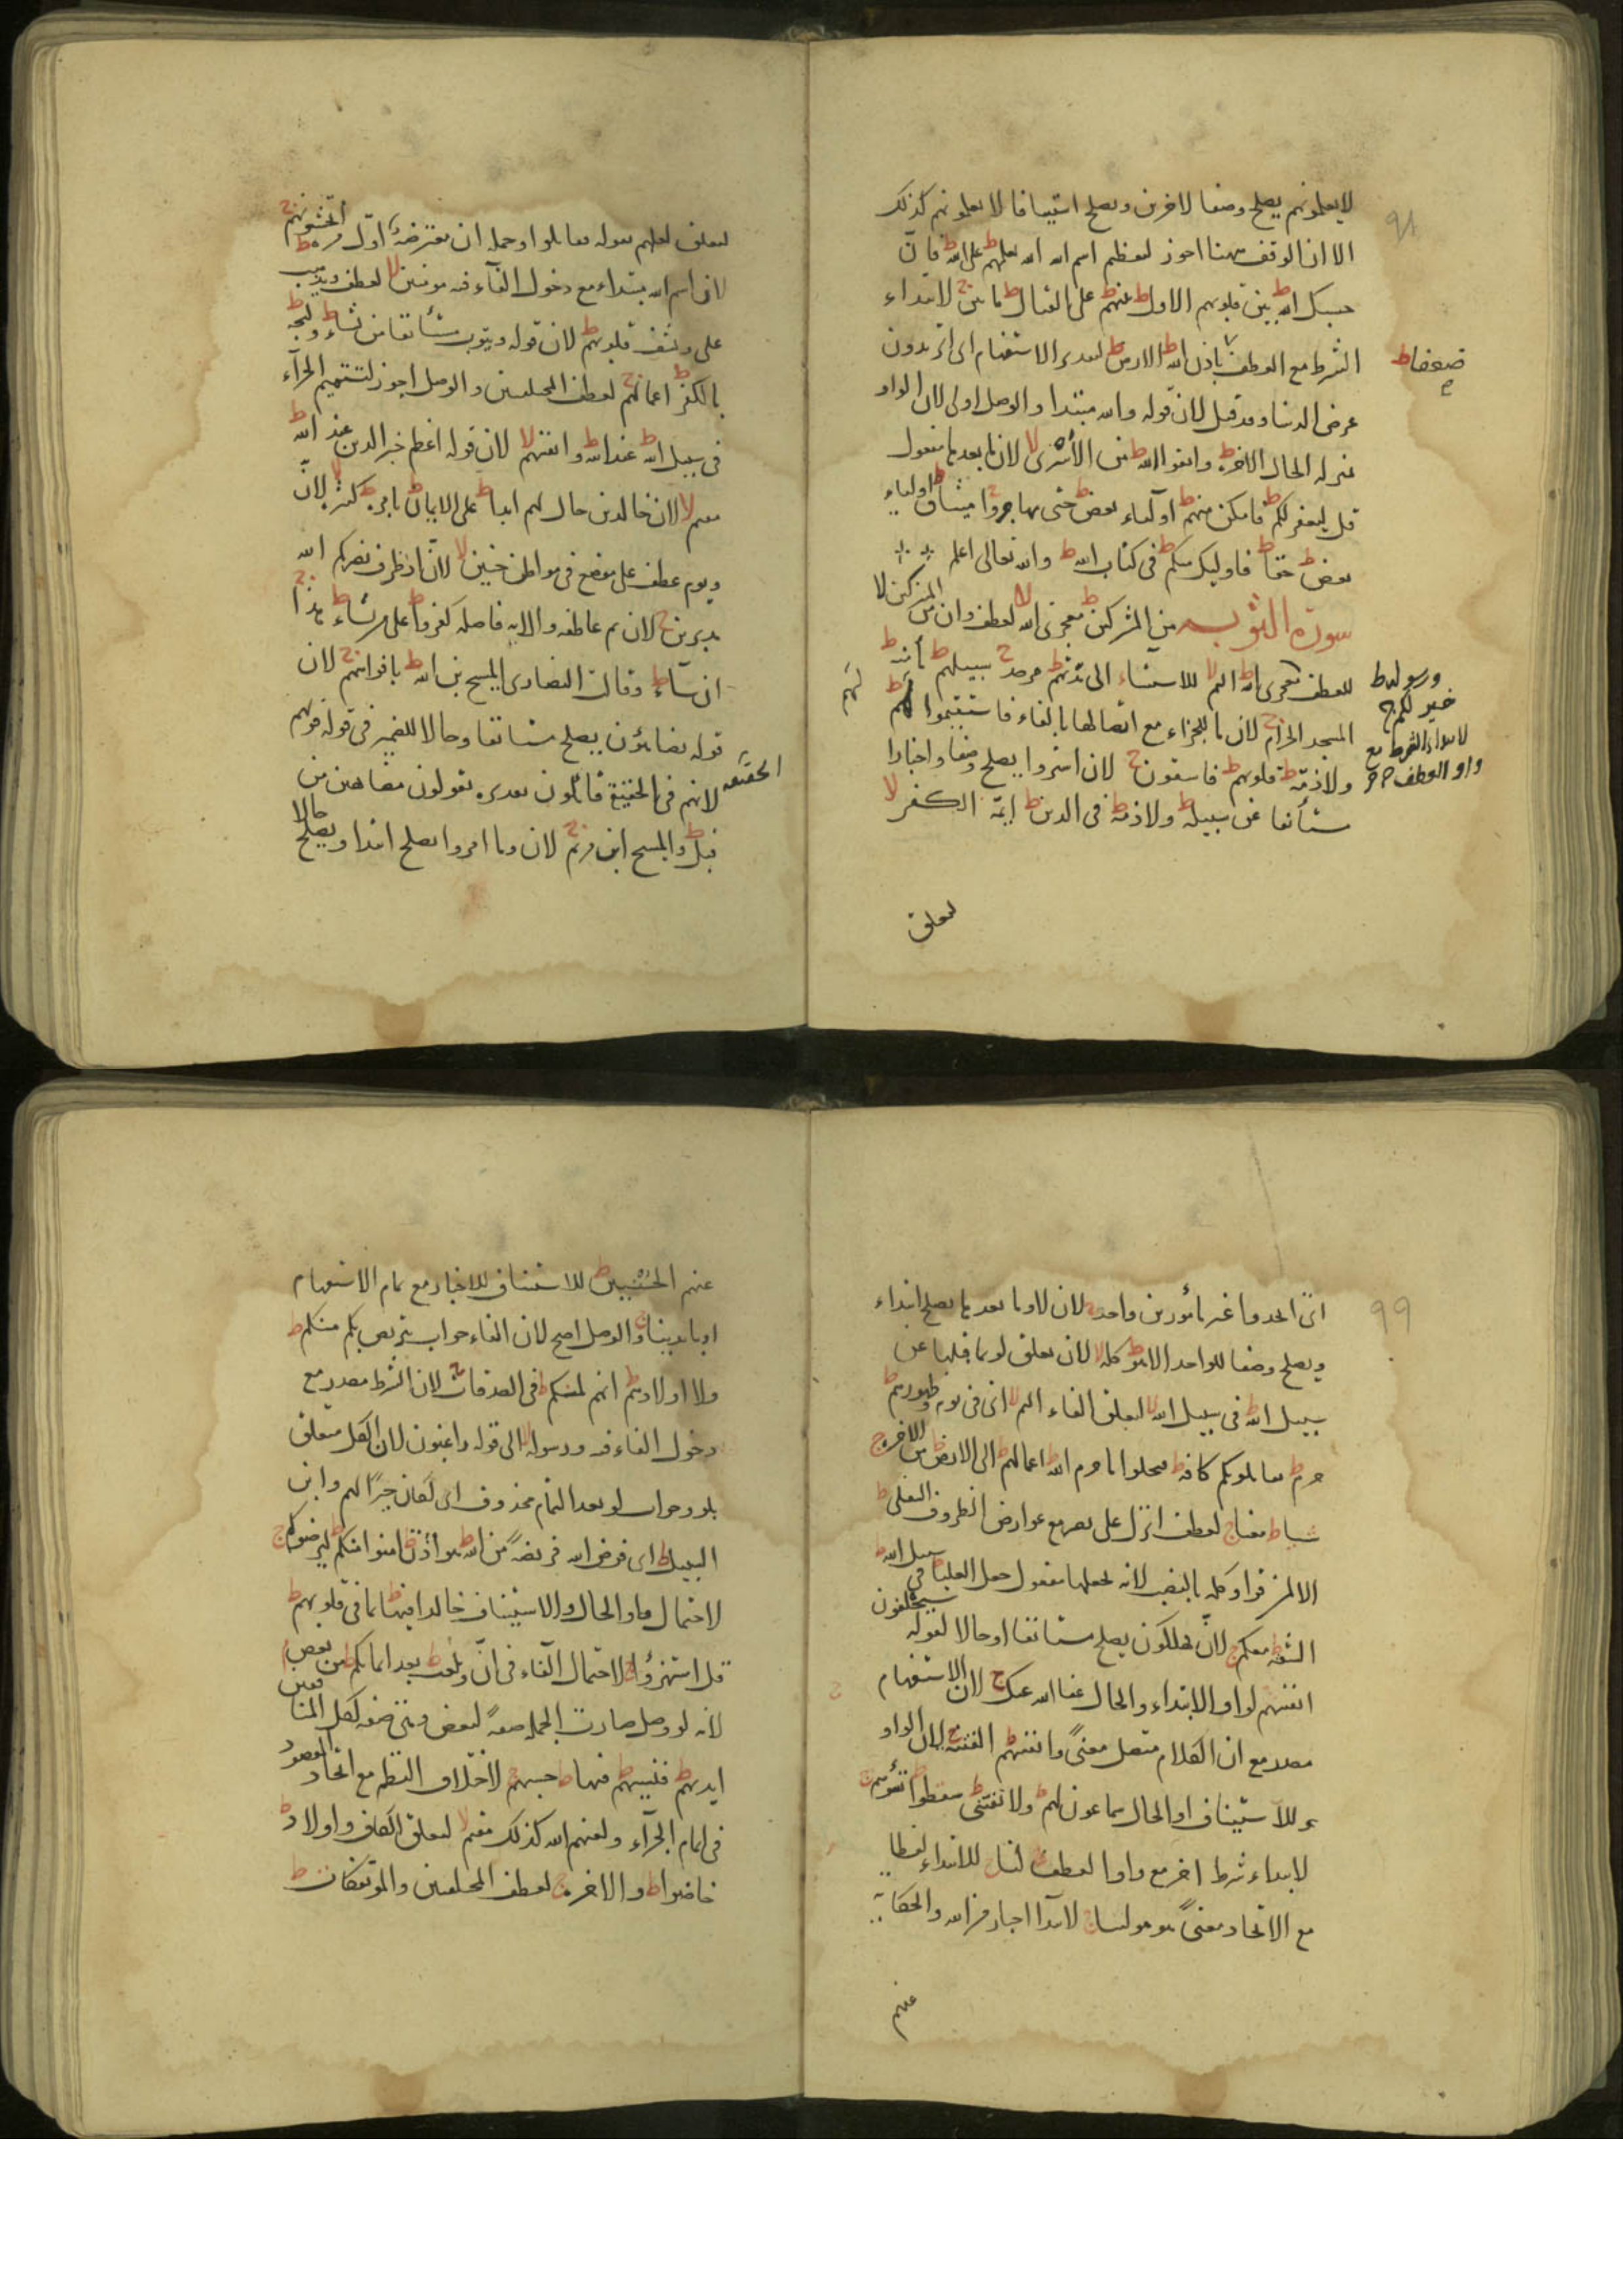 ٩٨
لا يعلمونهم يصلح وصفا لاخرين ويصلح استينافا لا يعلمونهم كذلك
الا ان الوقف ههنا اجوز لتعظيم اسم الله الله يعلمهم ط على الله ط فان
حسبك الله ط بين قلوبهم الاول ط بينهم ط على القتال ط ماتين ج لابتداء
الشرط مع العطف باذن الله ط الارض ط لتقدير الاستفهام اى اتريدون
ضعفا ط
عرض الدنيا وقد قيل لان قوله والله مبتدا والوصل اولى لان الواو
منزله الحال الاخرة ط واتقوا الله ط من الأسرى لا لان ما بعدها مفعول
قل يغفر لكم ط فامكن منهم ط اولياء بعض ط حتى يهاجروا ج ميثاق ط اولياء
بعض ط حقا ط فاوليك منكم ط فى كتاب الله ط والله تعالى اعلم
سورة التوبه من المشركين ط معجزى الله لا لعطف وان من المشركين لا
للعطف معجزى الله ط اليم لا للاستثناء الى مدتهم ط مرصد ج سبيلهم ط مأمنه ط
ورسوله ط
خير لكم ج
لابتداء الشرط مع
واو العطف
المسجد الحرام ج لان ما للجزاء مع اتصالها بالفاء فاستقيموا لهم ط
ولا ذمة ط قلوبهم ط فاسقون ج لان اشتروا يصلح وصفا واخبارا
مستأنفا عن سبيله ط ولا ذمة ط فى الدين ط ايمة الكفر لا
لتعلق
لتعلق لعلهم بقوله فقاتلوا وجمله ان معترضة اول مرة ط أتخشونهم ج
لان اسم الله مبتداء مع دخول الفاء فيه مومنين لا لعطف ويذهب
على ويشف قلوبهم ط لان قوله ويتوب مستأنفا من يشاء ط وليجة ط
بالكفر ط اعمالهم ج لعطف المختلفين والوصل اجوز لتتميم الجزآء
فى سبيل الله ط عند الله ط وانفسهم لا لان قوله اعظم خبر الدين عند الله ط
مقيم لا لان خالدين حال لهم ابدا ط على الايمان ط بامره ط كثيرة لا لان
ويوم عطف على موضع فى مواطن حنين لا لان اذ ظرف نصركم الله
مدبرين ج لان ثم عاطفه والاية فاصله كفروا ط على من يشاء ط هذا ج
ان شاء ط وقالت النصارى المسيح بن الله ط بافواههم ج لان
قوله يضاهؤن يصلح مستانفا وحالا للضمير فى قوله قولهم
لانهم فى الحقيقة قائلون تقديره يقولون مضاهين من
الحقيقه
قبل ط والمسيح ابن مريم ج لان وما امروا يصلح ابتدا ويصلح حالا
٩٩
اى اتخذوها غير مأمورين واحدا ج لان لا وما بعدها يصلح ابتداء
ويصلح وصفا للواحد الا هو ط كله لا لان تعلق لو بما قبلها عن
سبيل الله ط فى سبيل الله لا لتعلق الفاء اليم لا اى فى يوم وظهورهم ط
حرم ط يقاتلونكم كافة ط فيحلوا ما حرم الله ط اعمالهم ط الى الارض ط من الاخرة ج
شيا ط معنا ج لعطف انزل على نصر مع عوارض الظروف السفلى ط
الا لمن قرأ وكلمة بالنصب لانه يجعلها مفعول جعل العليا ط فى سبيل الله ط
الشقة ط معكم ج لان يهلكون يصلح مستانفا او حالا لقوله سيحلفون
انفسهم لواو الابتداء والحال عفا الله عنك ج لان الاستفهام
مصدر مع ان الكلام متصل معنى وانفسهم ط الفتنة ج لان الواو
للاستيناف او الحال سماعون لهم ط ولا تفتنى ط سقطوا ط تسؤهم ج
لابتداء شرط اخر مع واو العطف لنا ج للابتداء لفظا
مع الاتحاد معنى هو مولينا ج لابتداء اخبار من الله والحكاية
عنهم
عنهم الحسنيين ط للاستيناف للاخبار مع تمام الاستفهام
او بايدينا ز والوصل اصح لان الفاء جواب نتربص بكم منكم ط
ولا اولادهم ط انهم لمنكم ط فى الصدقات ج لان الشرط مصدر مع
دخول الفاء فيه ورسوله لا الى قوله راغبون لان الكل متعلق
بلو وجواب لو بعد التمام محذوف اى لكان خيرا لهم وابن
السبيل ط اى فرض الله فريضة من الله ط هو اذن ط امنوا منكم ط ليرضوكم ج
لاحتمال واو الحال والاستيناف خالدا فيها ط بما فى قلوبهم ط
قل استهزؤا ج لاحتمال الفاء فى ان ونلعب ط بعد ايمانكم ط من بعض م
لانه لو وصل صارت الجملة صفة لبعض وهى صفه لكل المنافقين
ايديهم ط فنسيهم ط فيها ط حسبهم ج لاختلاف النظم مع اتحاد المقصود
فى اتمام الجزآء ولعنهم الله كذلك مقيم لا لتعلق الكاف واولادا ط
خاضوا ط والاخرة ج لعطف المختلفين والموتفكات ط